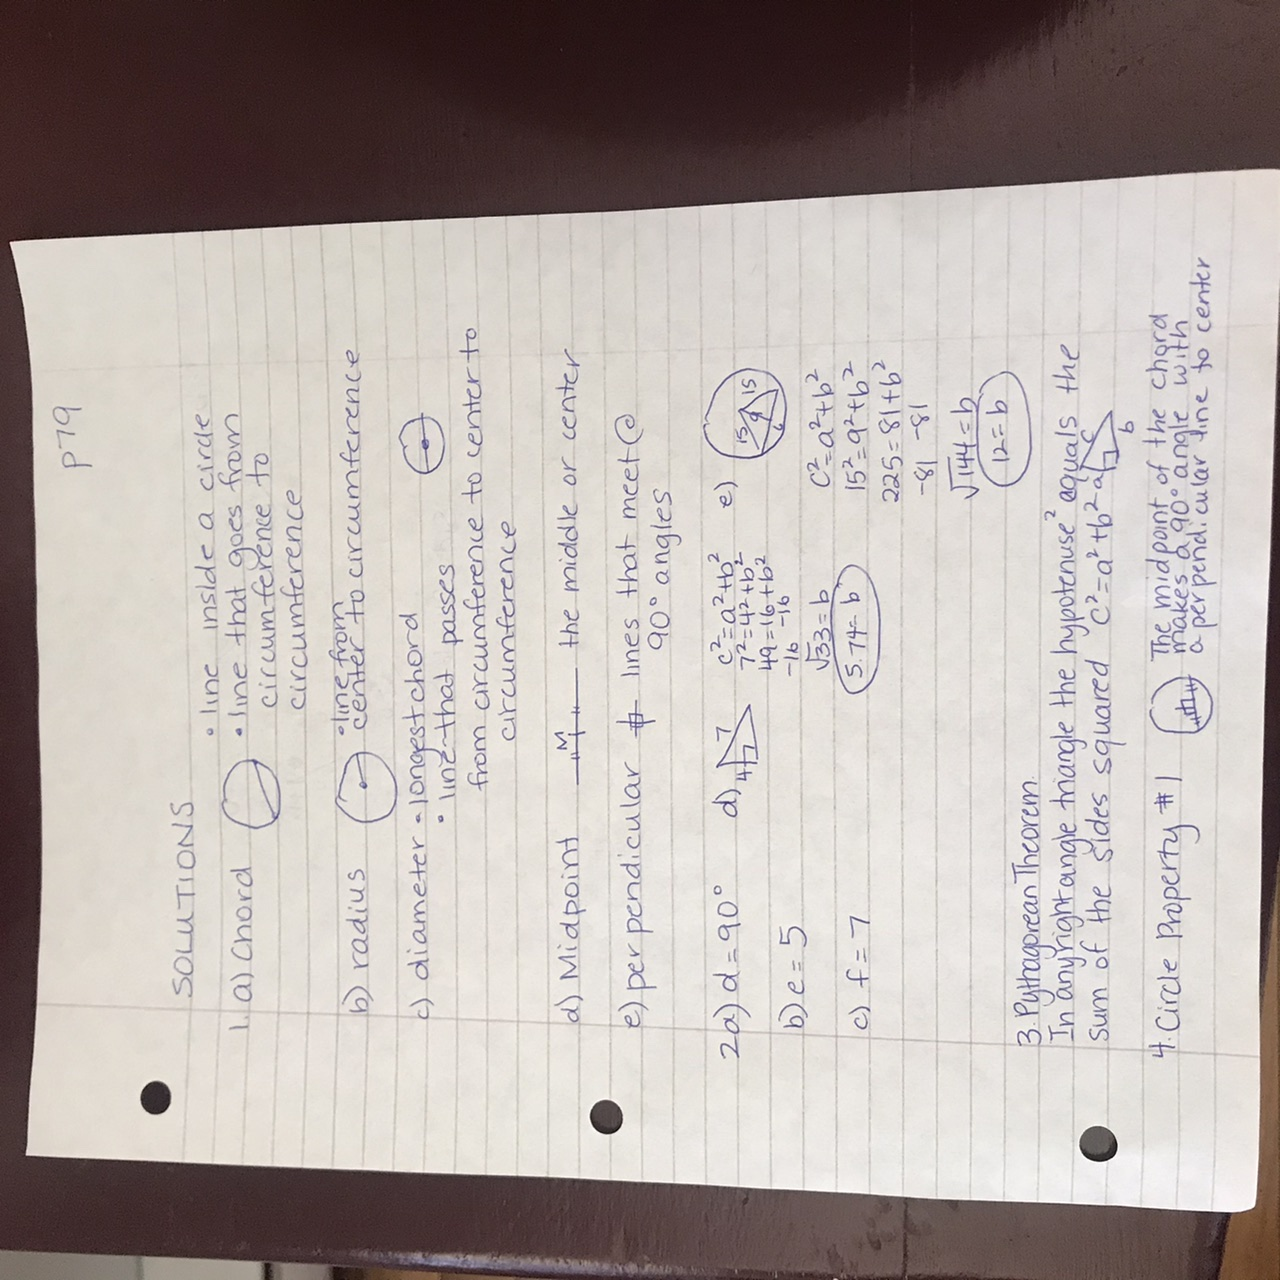 P79
SOLUTIONS
1. a) Chord • line inside a circle
• line that goes from
circumference to
circumference
b) radius • line from
center to circumference
c) diameter • longest chord
• line that passes
from circumference to center to
circumference
d) Midpoint M the middle or center
e) perpendicular lines that meet @
90° angles
2a) d = 90°
b) e = 5
c) f = 7
d) 4 7
c² = a² + b²
7² = 4² + b²
49 = 16 + b²
-16 -16
√33 = b
5.74 = b
e) 15 9 15
c² = a² + b²
15² = 9² + b²
225 = 81 + b²
-81 -81
√144 = b
12 = b
3. Pythagorean Theorem
In any right angle triangle the hypotenuse² equals the
sum of the sides squared c² = a² + b² a c b
4. Circle Property #1 The midpoint of the chord
makes a 90° angle with
a perpendicular line to center